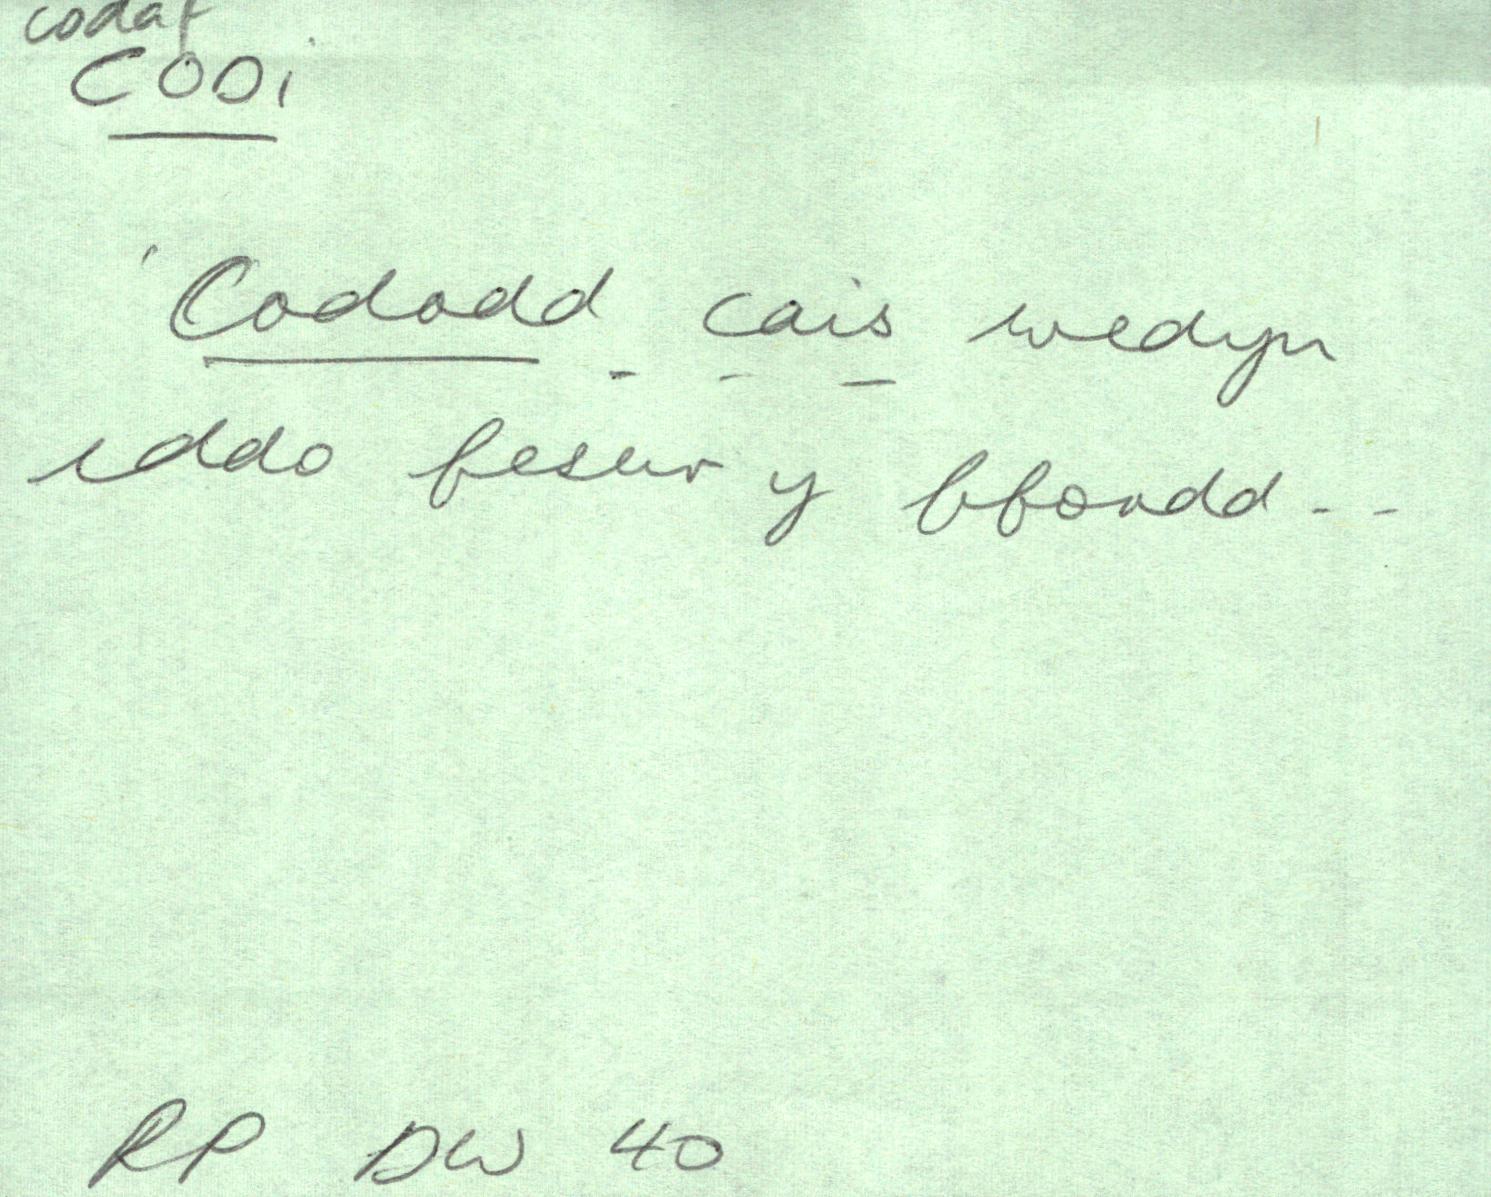 codaf
CODi
'Cododd cais wedyn
iddo fesur y ffordd..
RP DW 40